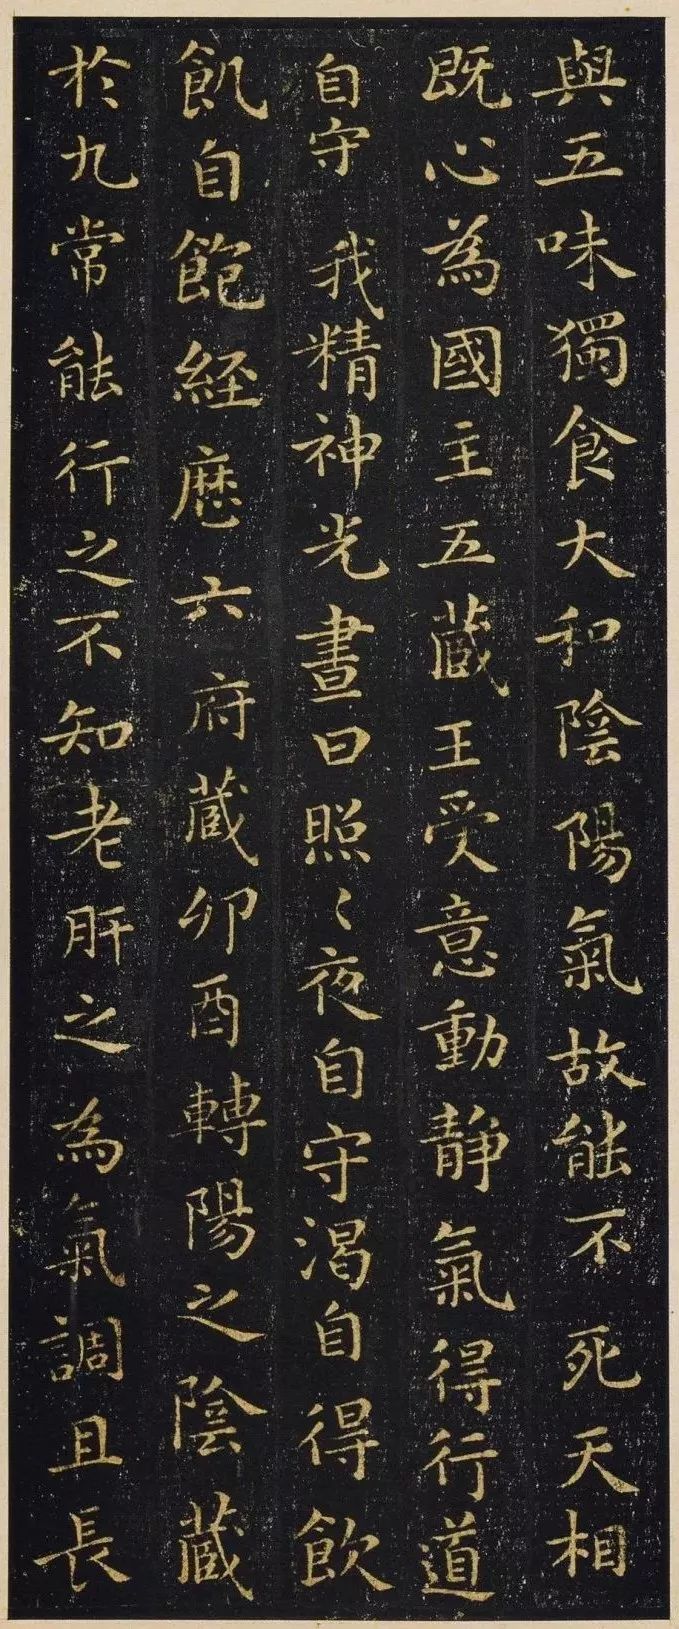 與五味獨食大和陰陽氣故能不死天相
既心為國主五蔵王受意動静氣得行道
自守我精神光晝日照〻夜自守渴自得飲
飢自飽經歴六府蔵卯酉轉陽之陰蔵
於九常能行之不知老肝之為氣調且長